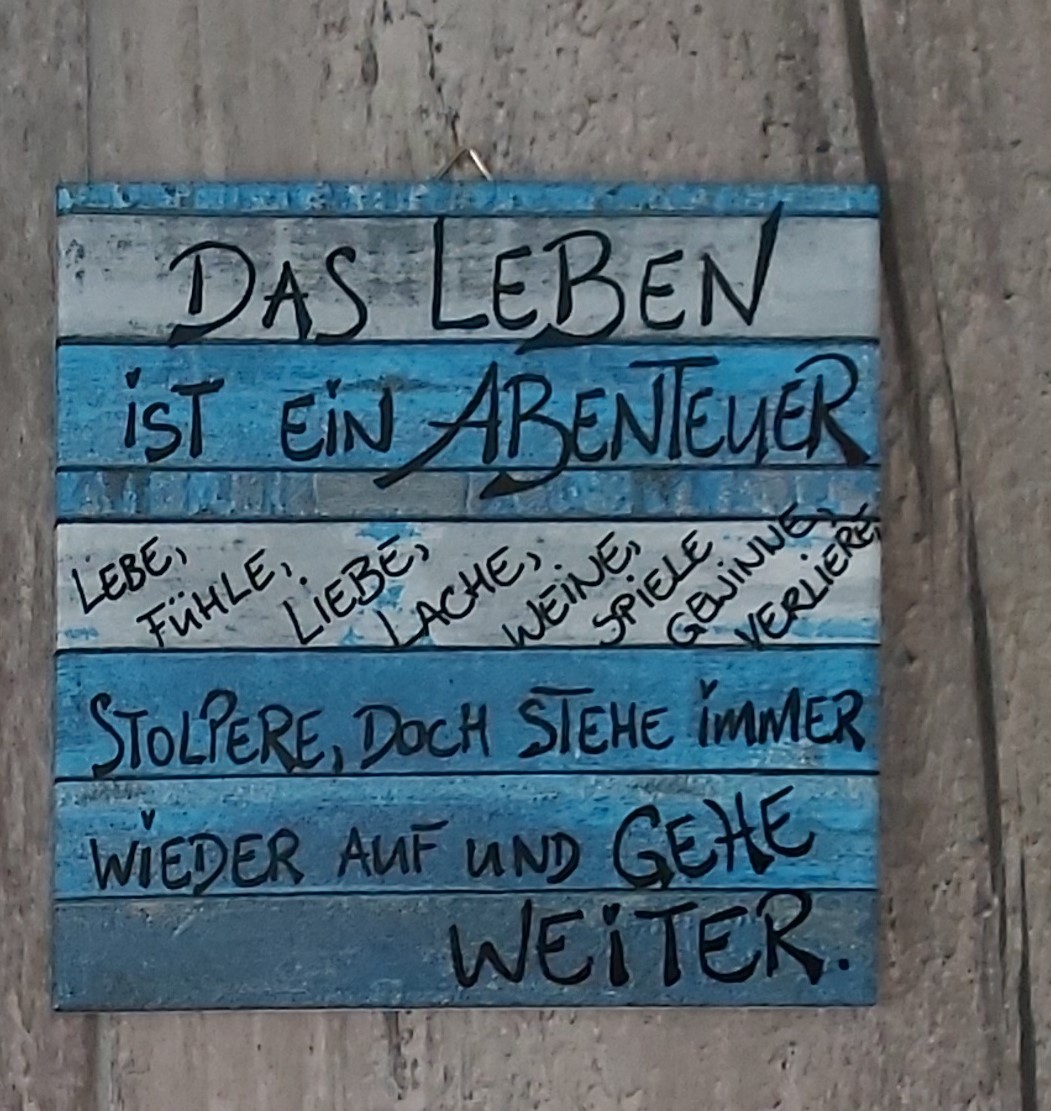 DAS LEBEN
iST EiN ABENTEUER
LEBE, FÜHLE, LIEBE, LACHE, WEiNE, SPiELE GEWiNNE, VERLiERE,
STOLPERE, DOCH STEHE iMMER
WiEDER AUF UND GEHE
WEiTER.